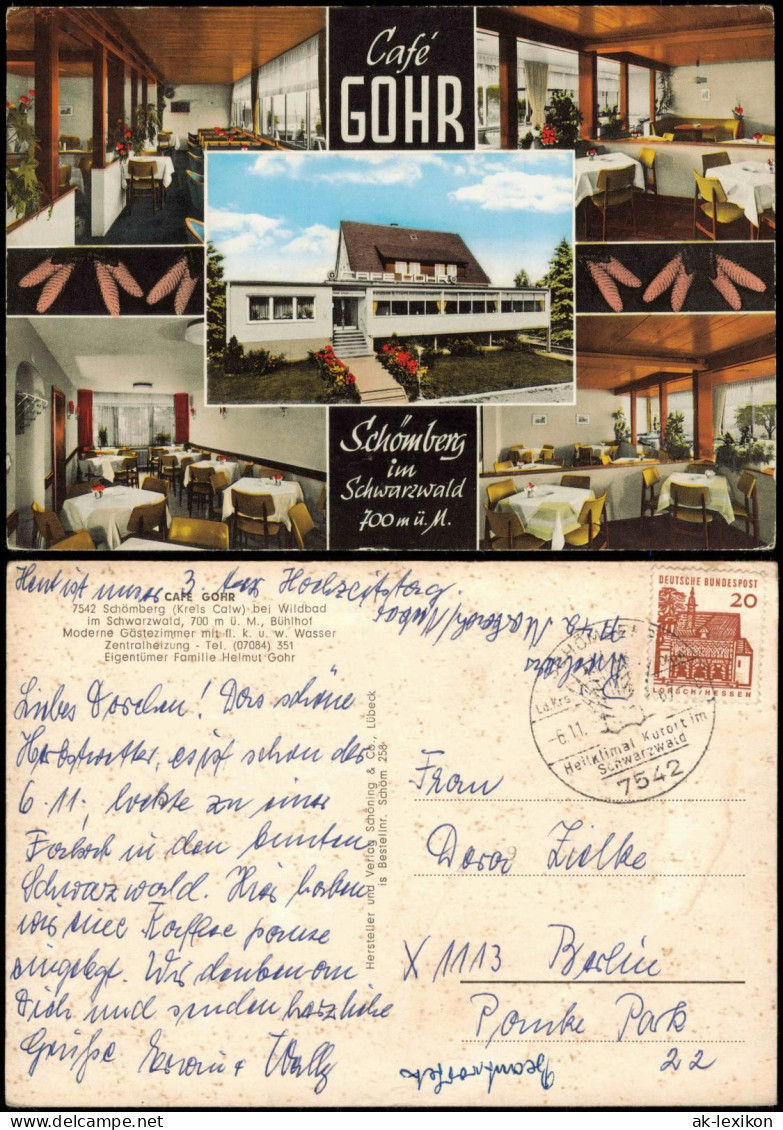 Café
GOHR
CAFE GOHR
Schömberg
im
Schwarzwald
700 m ü. M.
Heut ist unser 3. Hochzeitstag.
CAFE GOHR
7542 Schömberg (Kreis Calw) bei Wildbad
im Schwarzwald, 700 m ü. M., Bühlhof
Moderne Gästezimmer mit fl. k. u. w. Wasser
Zentralheizung - Tel. (07084) 351
Eigentümer Familie Helmut Gohr
Liebes Dorchen! Das schöne
Herbstwetter, es ist schon der
6.11., lockte zu einer
Fahrt in den bunten
Schwarzwald. Hier haben
wir eine Kaffee pause
eingelegt. Wir denken an
Dich und senden herzliche
Grüße Erwin + Wally
Hersteller und Verlag Schöning & Co., Lübeck
is Bestellnr. Schöm 258
DEUTSCHE BUNDESPOST
20
LORSCH/HESSEN
Ld.Krs.
-6.11.
Heilklimat. Kurort im
Schwarzwald
7542
Frau
Dora Zielke
X 1113 Berlin
Park
22
beantwortet
www.delcampe.net
ak-lexikon